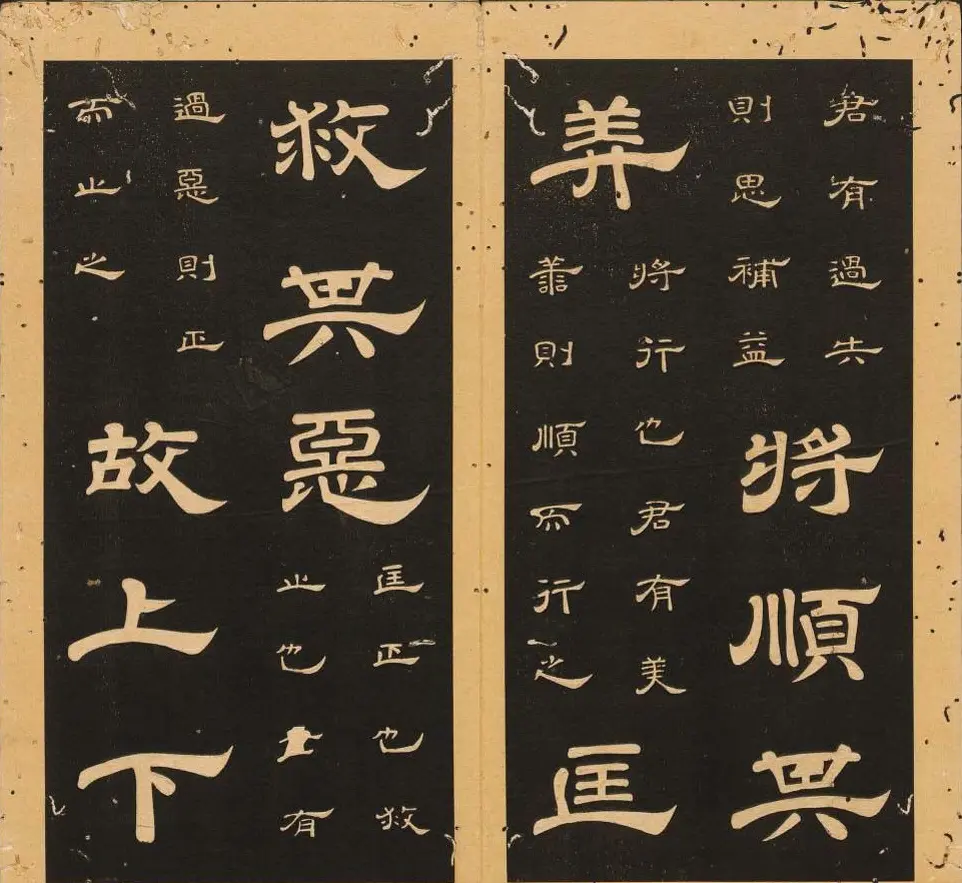 君有過失
則思補益
將順其
美
將行也君有美
善則順而行之
匡
救其惡
匡正也救
止也主有
過惡則正
而止之
故上下